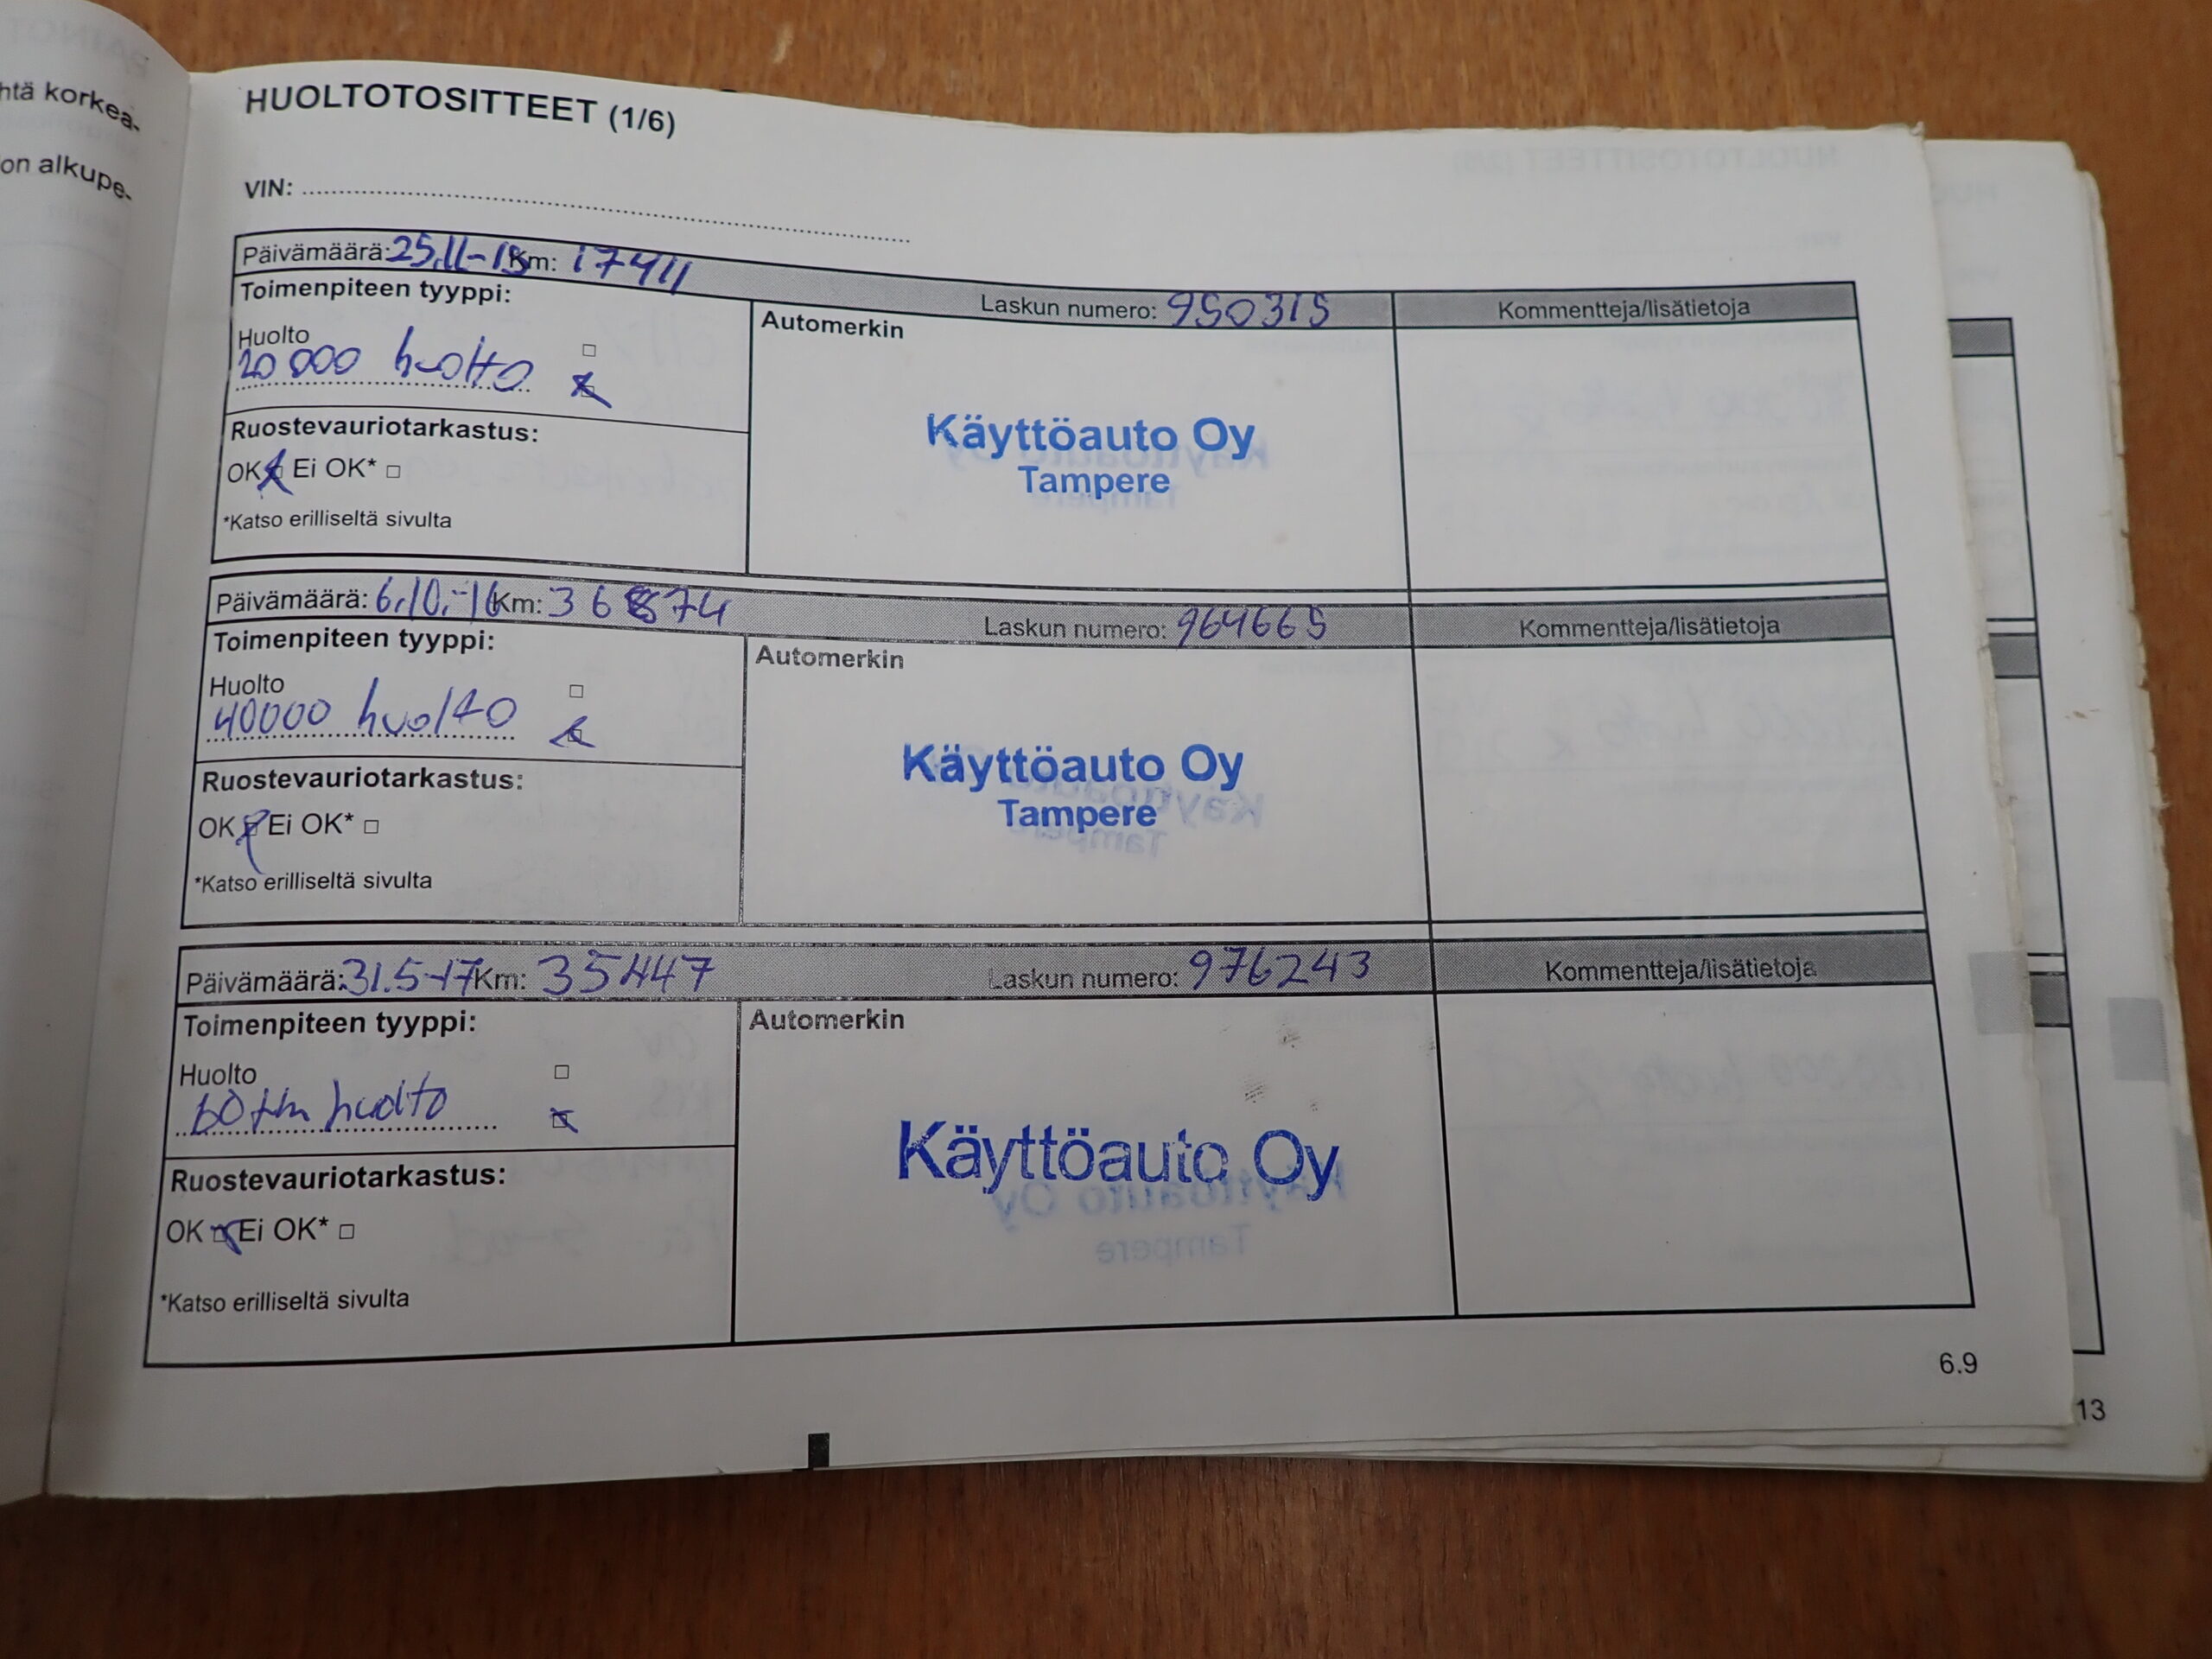 htä korkea-
on alkupe-
HUOLTOTOSITTEET (1/6)
VIN:
Päivämäärä: 25.11-15 Km: 17411
Laskun numero: 950315
Kommentteja/lisätietoja
Toimenpiteen tyyppi:
Automerkin
Huolto
20 000 huolto
Ruostevauriotarkastus:
OK Ei OK*
*Katso erilliseltä sivulta
Käyttöauto Oy
Tampere
Päivämäärä: 6.10.-16 Km: 36874
Laskun numero: 964665
Kommentteja/lisätietoja
Toimenpiteen tyyppi:
Automerkin
Huolto
40000 huolto
Ruostevauriotarkastus:
OK Ei OK*
*Katso erilliseltä sivulta
Käyttöauto Oy
Tampere
Päivämäärä: 31.5-17 Km: 35447
Laskun numero: 976243
Kommentteja/lisätietoja
Toimenpiteen tyyppi:
Automerkin
Huolto
60 tkm huolto
Ruostevauriotarkastus:
OK Ei OK*
*Katso erilliseltä sivulta
Käyttöauto Oy
6.9
13